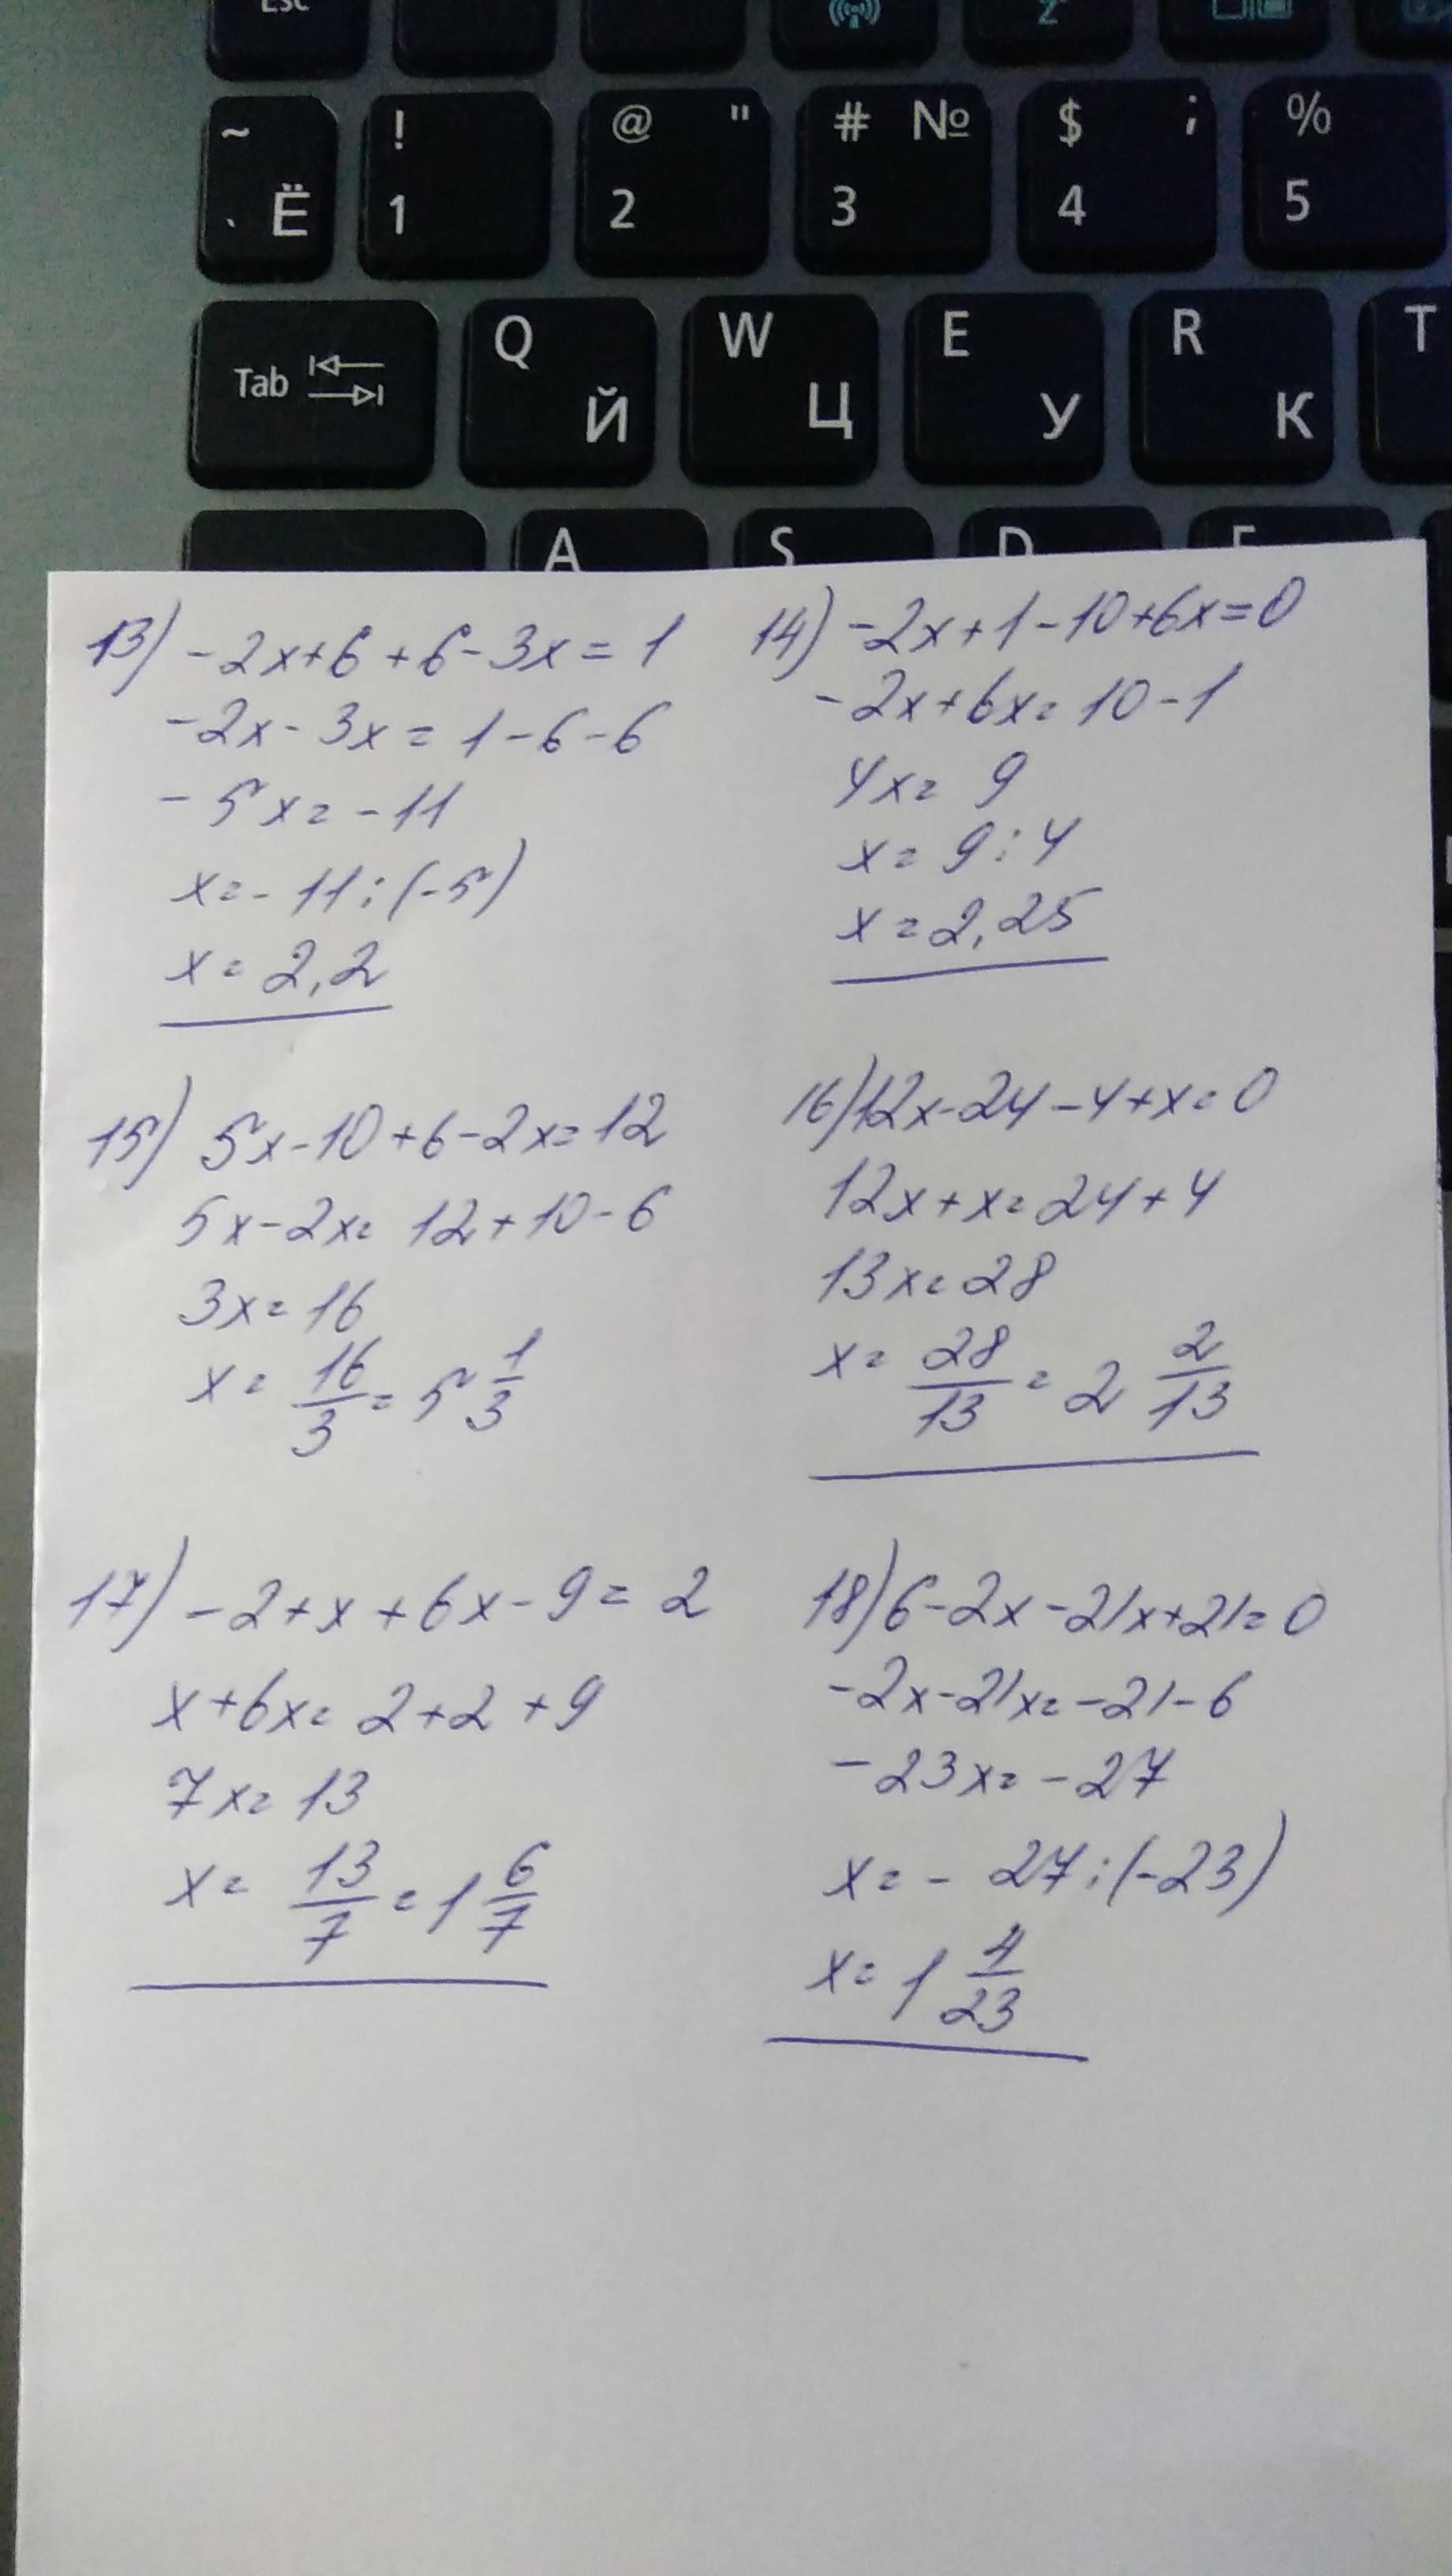 Esc
~ ! @ " # № $ ; %
` Ё 1 2 3 4 5
Tab Q Й W Ц E У R К T
A S D F
13) -2x+6+6-3x=1
-2x-3x=1-6-6
-5x=-11
x=-11:(-5)
x=2,2
14) -2x+1-10+6x=0
-2x+6x=10-1
4x=9
x=9:4
x=2,25
15) 5x-10+6-2x=12
5x-2x=12+10-6
3x=16
x=16/3=5 1/3
16) 12x-24-4+x=0
12x+x=24+4
13x=28
x=28/13=2 2/13
17) -2+x+6x-9=2
x+6x=2+2+9
7x=13
x=13/7=1 6/7
18) 6-2x-21x+21=0
-2x-21x=-21-6
-23x=-27
x=-27:(-23)
x=1 4/23